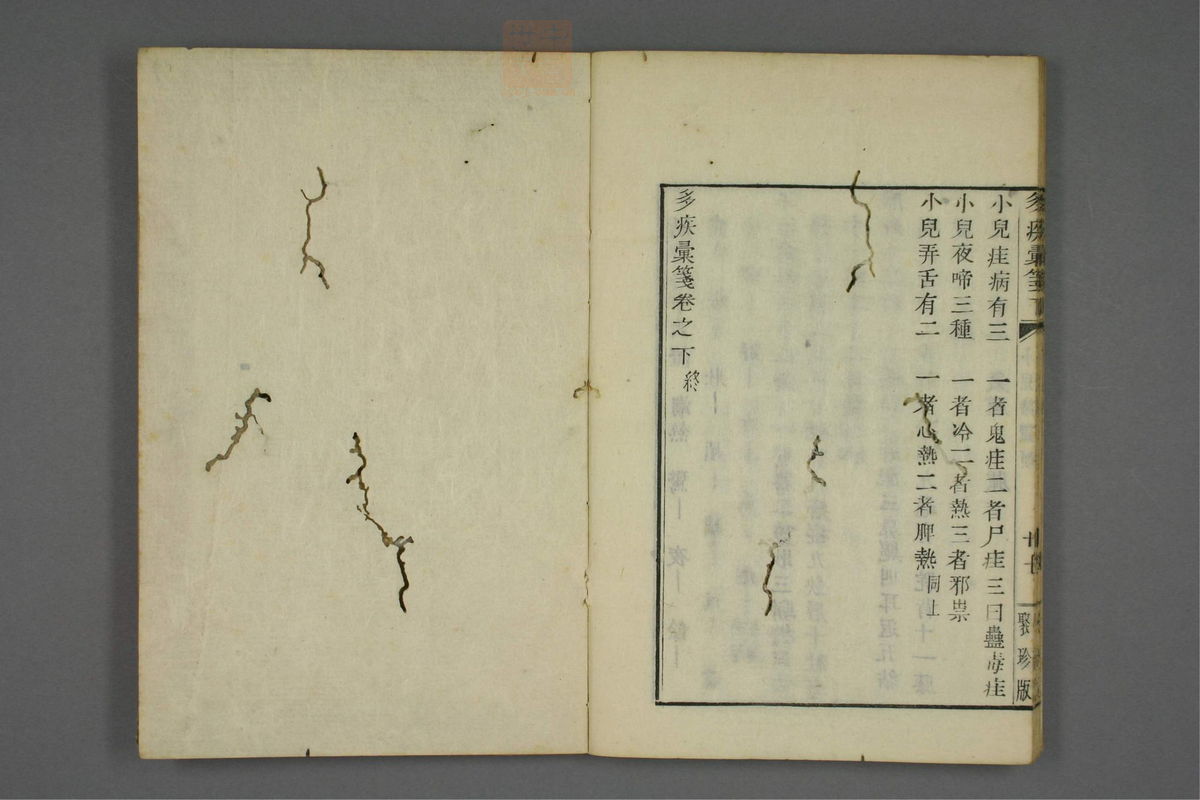 多疾彙箋下
聚珍版
小兒疰病有三 一者鬼疰二者尸疰三曰蠱毒疰
小兒夜啼三種 一者冷二者熱三者邪祟
小兒弄舌有二 一者心熱二者脾熱同上
多疾彙箋卷之下終